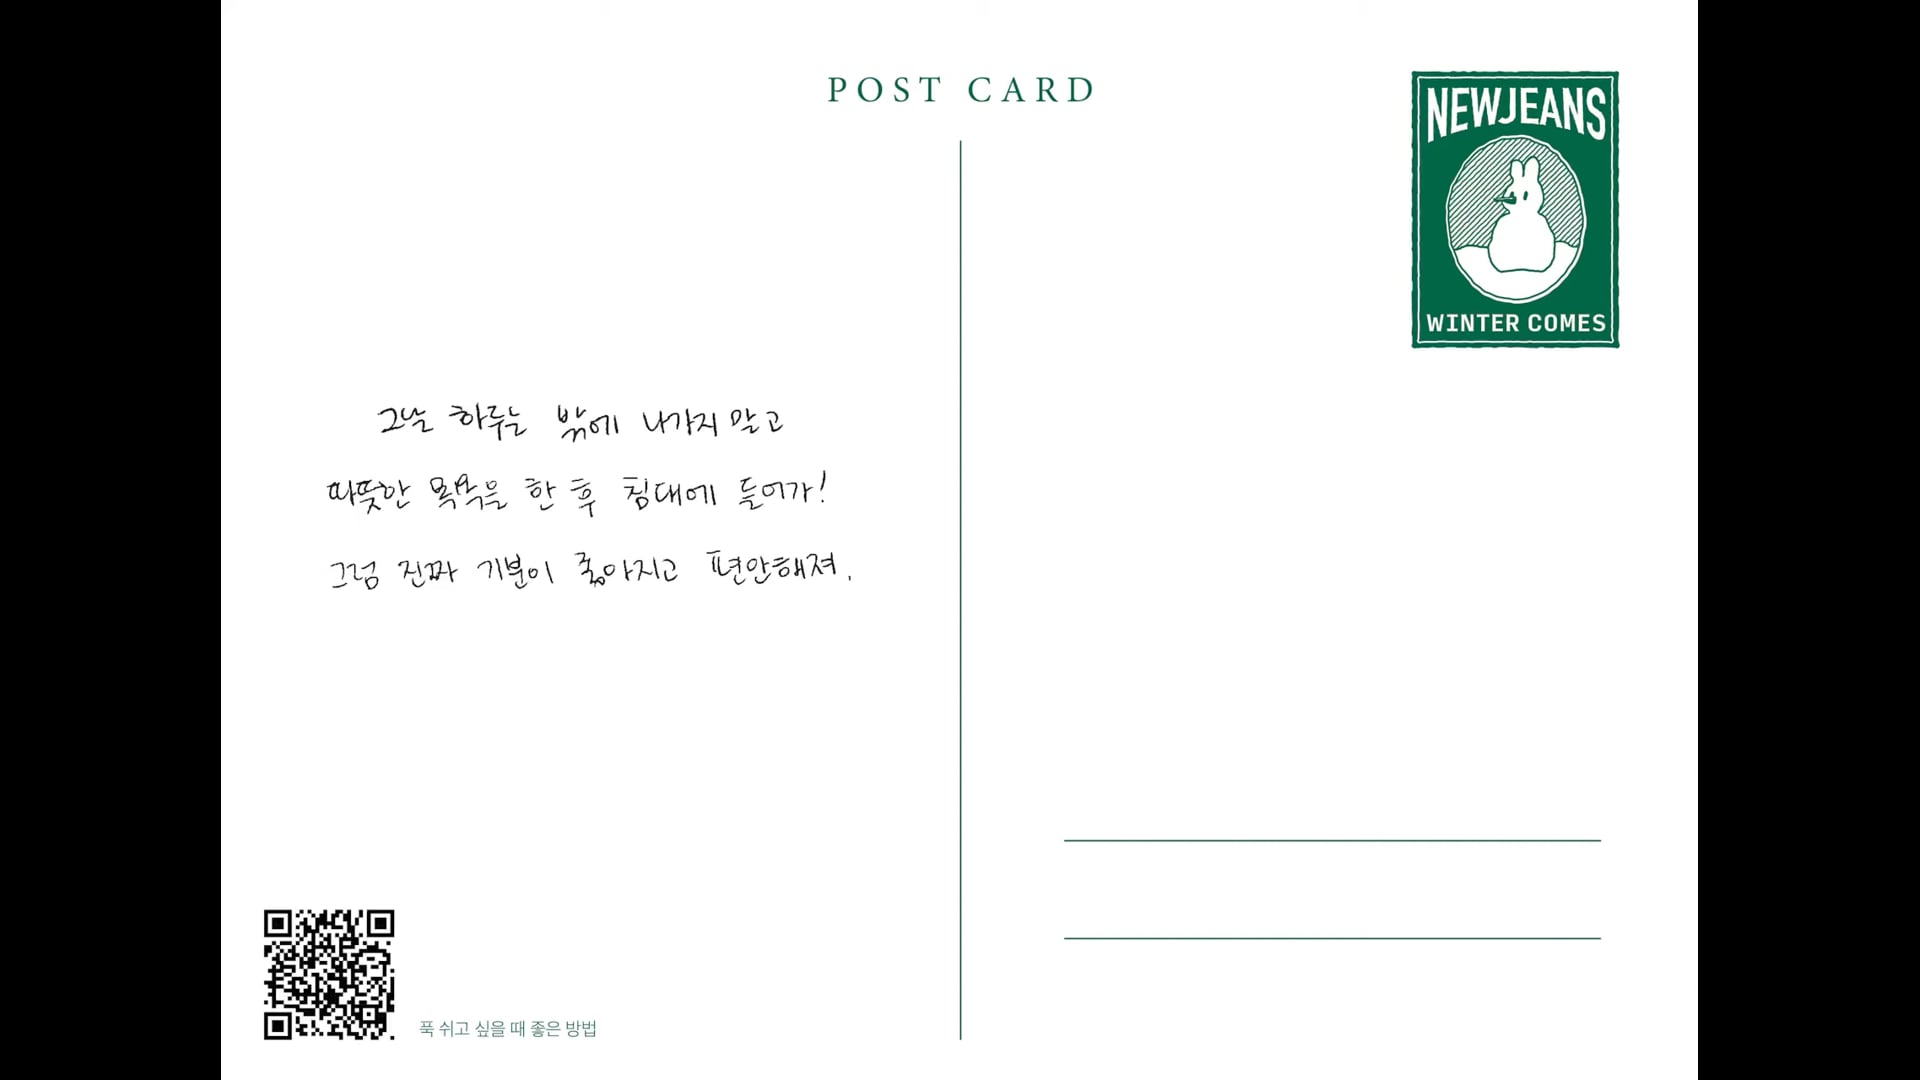 POST CARD
NEWJEANS
WINTER COMES
그날 하루는 밖에 나가지 말고
따뜻한 목욕을 한 후 침대에 들어가!
그럼 진짜 기분이 좋아지고 편안해져.
푹 쉬고 싶을 때 좋은 방법